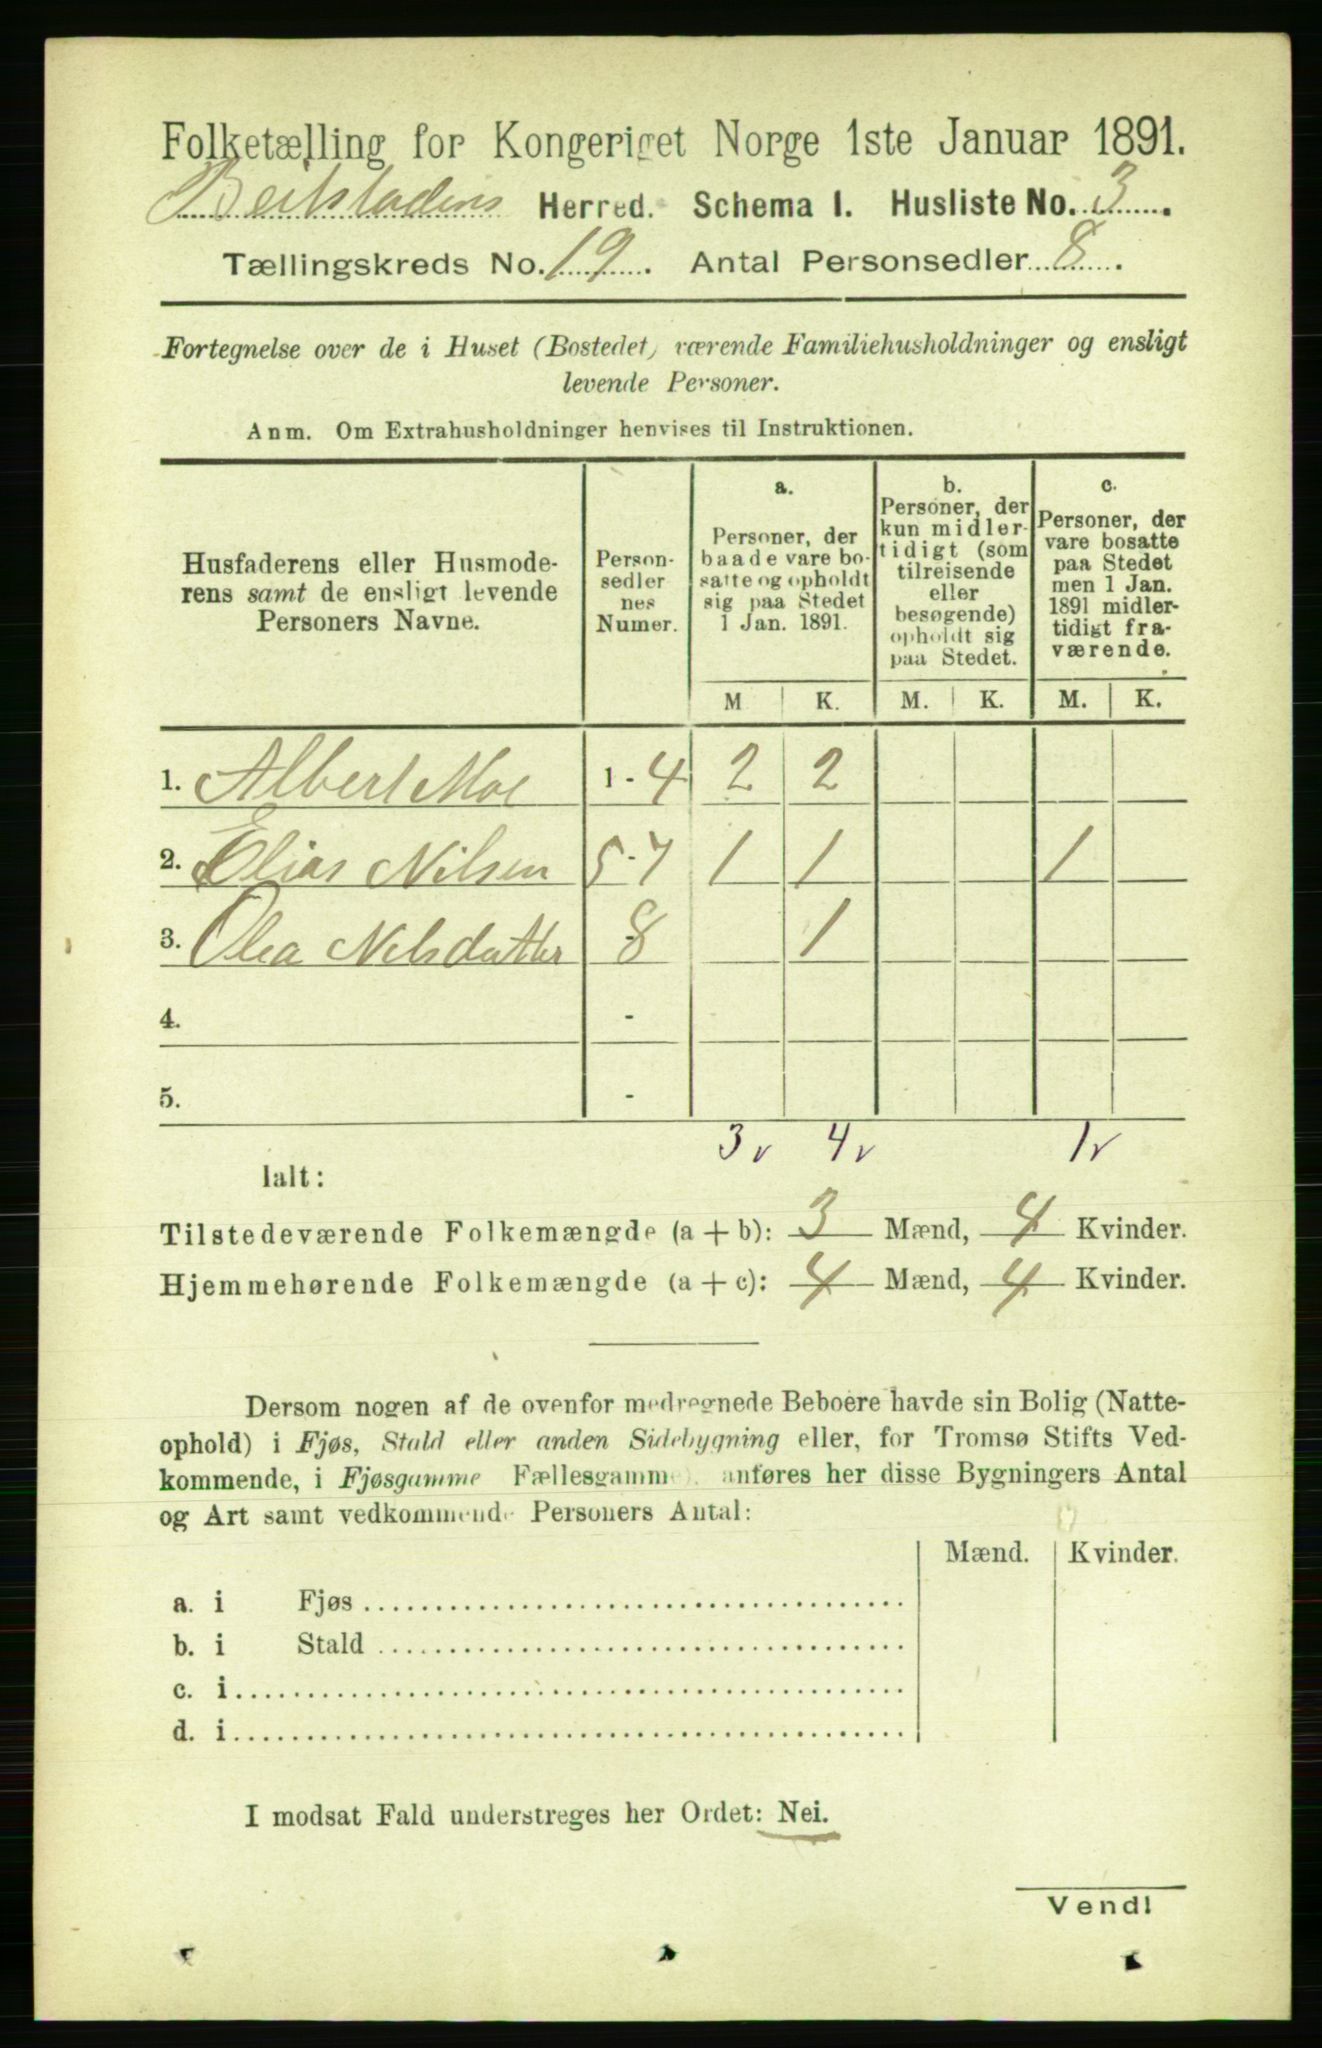 Folketælling for Kongeriget Norge 1ste Januar 1891.
Beitstadens Herred. Schema 1. Husliste No. 3.
Tællingskreds No. 19. Antal Personsedler 8.
Fortegnelse over de i Huset (Bostedet) værende Familiehusholdninger og ensligt
levende Personer.
Anm. Om Extrahusholdninger henvises til Instruktionen.
Husfaderens eller Husmode-
rens samt de ensligt levende
Personers Navne.
Person-
sedler
nes
Numer.
a.
Personer, der
baade vare bo-
satte og opholdt
sig paa Stedet
1 Jan. 1891.
b.
Personer, der
kun midler-
tidigt (som
tilreisende
eller
besøgende)
opholdt sig
paa Stedet.
c.
Personer, der
vare bosatte
paa Stedet
men 1 Jan.
1891 midler-
tidigt fra-
værende.
M K. M. K. M. K.
1. Albert Moe 1-4 2 2
2. Elias Nilsen 5-7 1 1 1
3. Olea Nelsdatter 8 1
4. -
5. -
3v 4v 1v
Ialt:
Tilstedeværende Folkemængde (a + b): 3 Mænd, 4 Kvinder.
Hjemmehørende Folkemængde (a + c): 4 Mænd, 4 Kvinder.
Dersom nogen af de ovenfor medregnede Beboere havde sin Bolig (Natte-
ophold) i Fjøs, Stald eller anden Sidebygning eller, for Tromsø Stifts Ved-
kommende, i Fjøsgamme Fællesgamme), anføres her disse Bygningers Antal
og Art samt vedkommende Personers Antal:
Mænd. Kvinder.
a. i Fjøs
b. i Stald
c. i
d. i
I modsat Fald understreges her Ordet: Nei.
Vend!